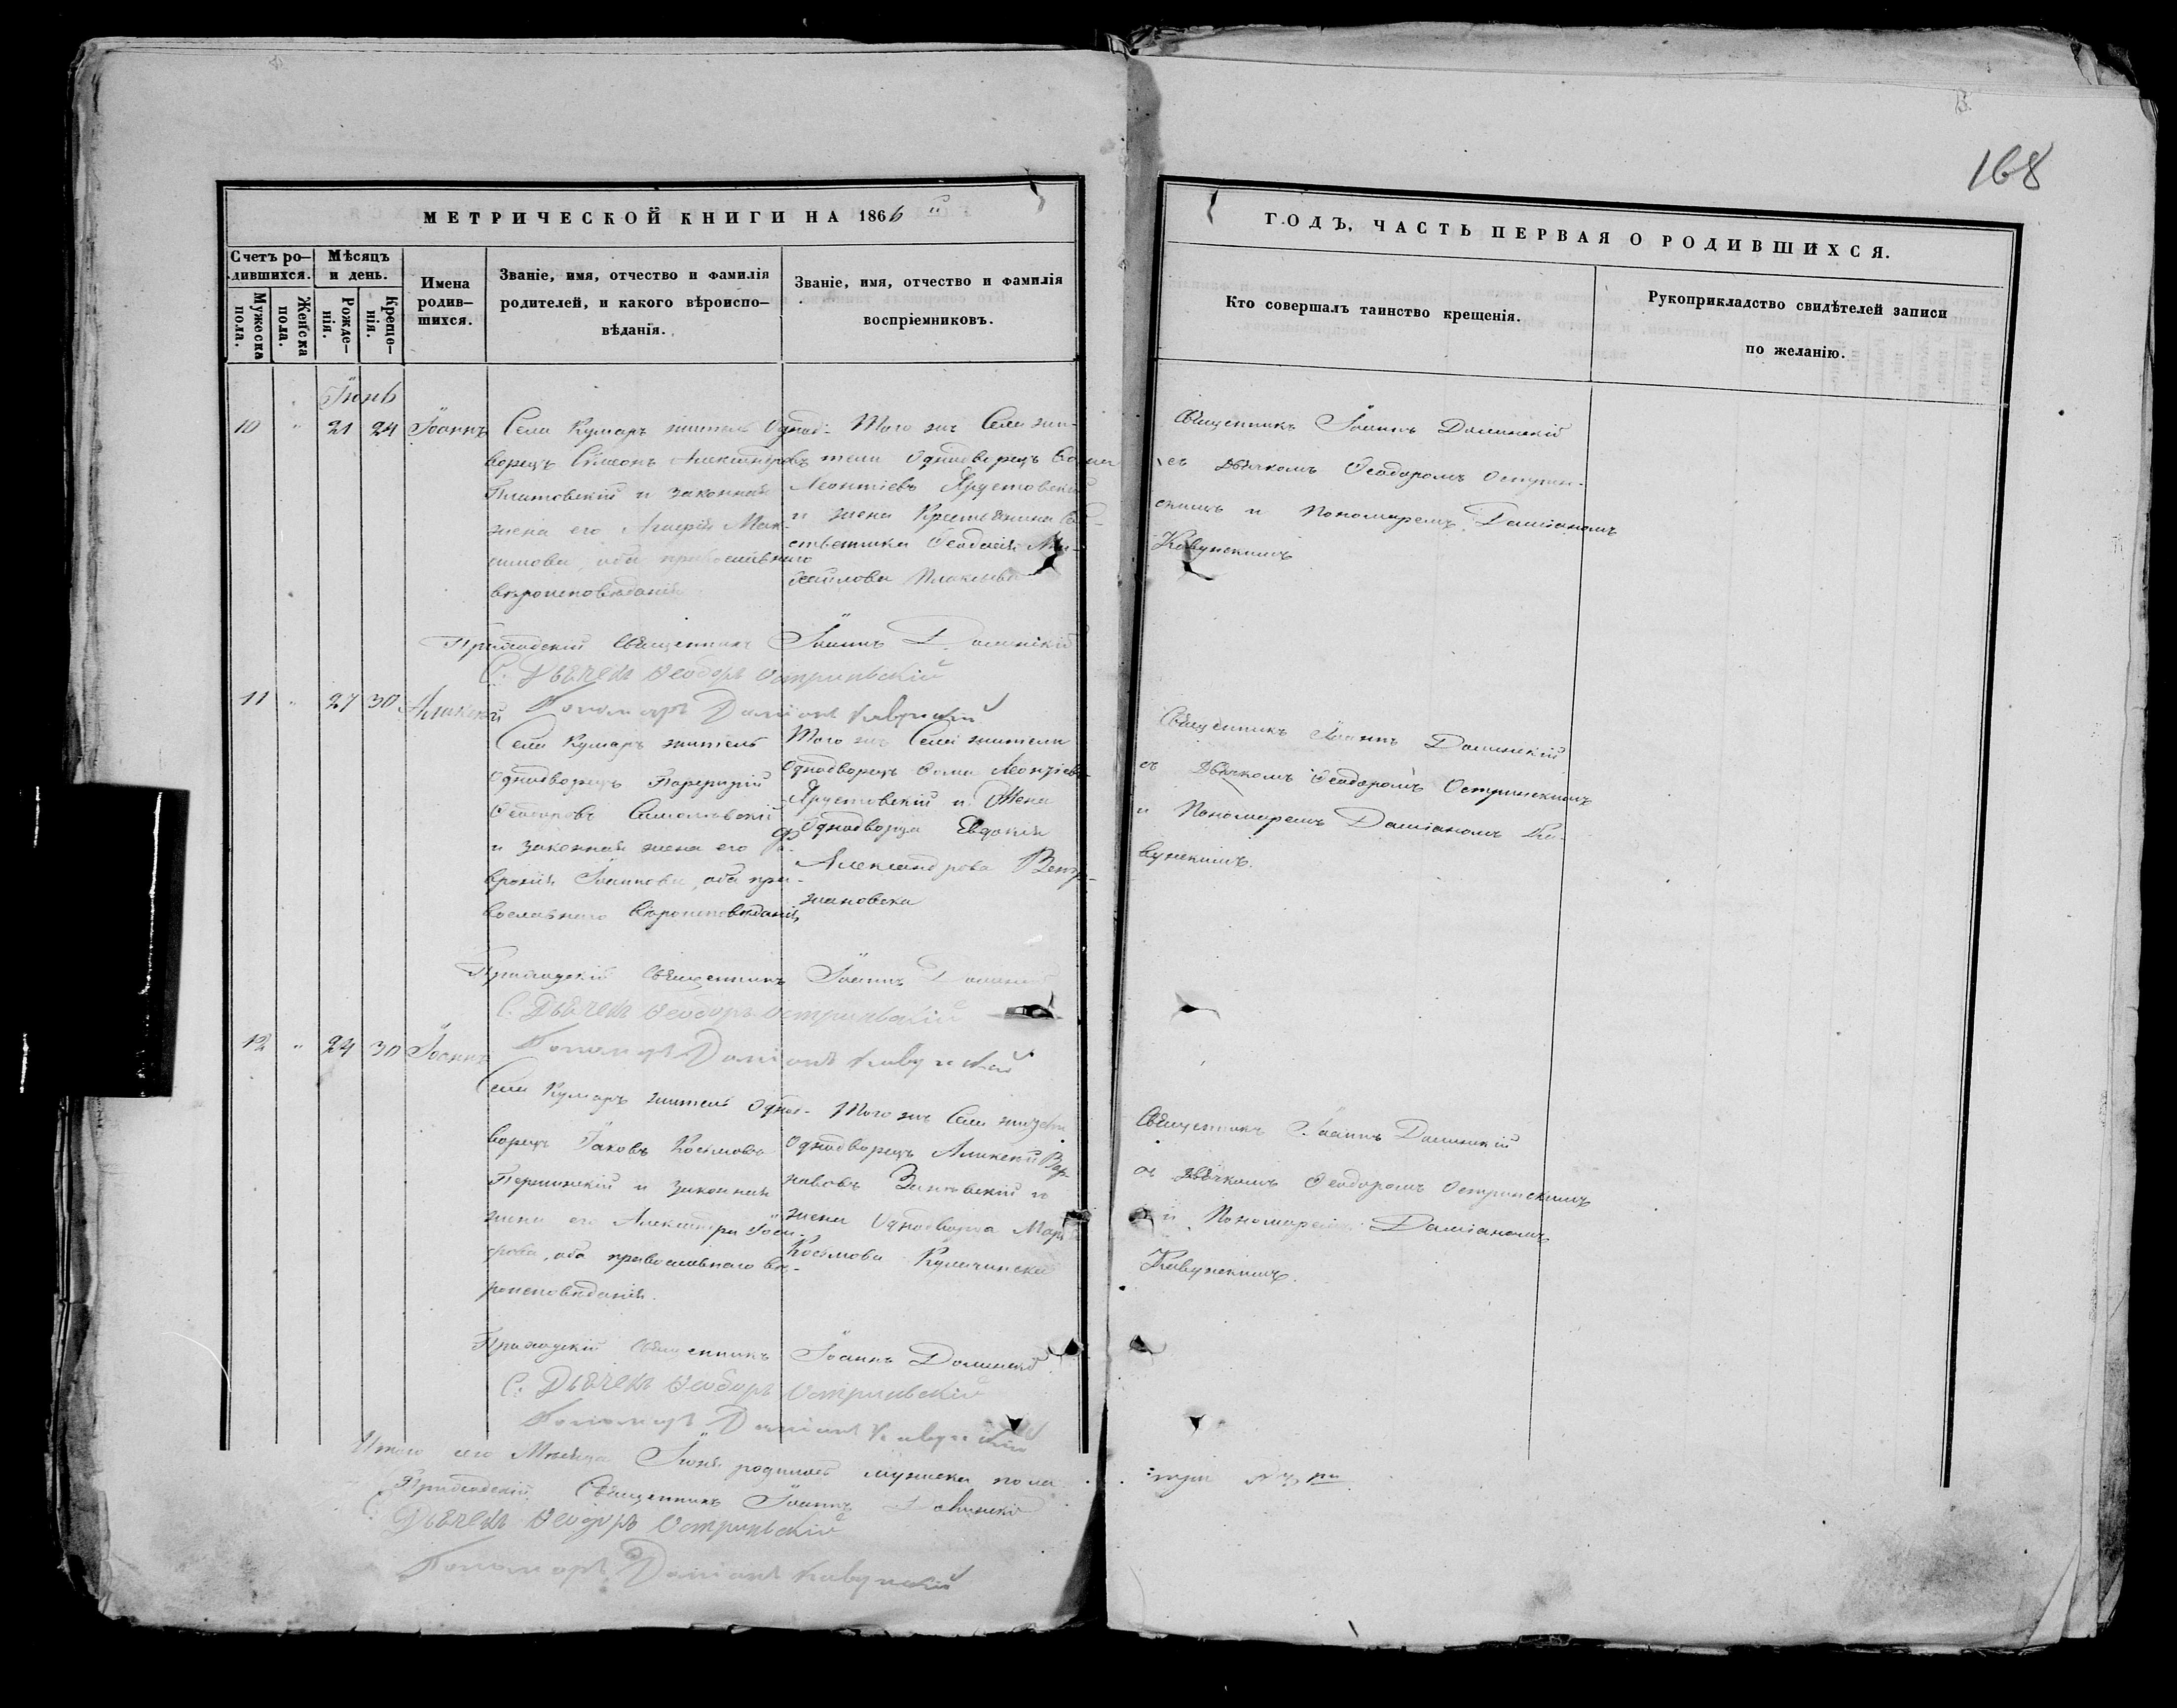 168
МЕТРИЧЕСКОЙ КНИГИ НА 1866 й
ГОДЪ, ЧАСТЬ ПЕРВАЯ О РОДИВШИХСЯ.
Счетъ ро-
дившихся.
Мужеска
пола.
Женска
пола.
Мѣсяцъ
и день.
Рожде-
нія.
Креще-
нія.
Имена
родив-
шихся.
Званіе, имя, отчество и фамилія
родителей, и какого вѣроиспо-
вѣданія.
Званіе, имя, отчество и фамилія
воспріемниковъ.
Кто совершалъ таинство крещенія.
Рукоприкладство свидѣтелей записи
по желанію.
Іюнь
10 " 21 24 Іоаннъ
Села Кумаръ житель Однод-
ворецъ Сѵмеонъ Александровъ
и законная
жена его Мак-
симова, оба православнаго
вѣроисповѣданія
Того же Села жи-
тели Однодворецъ
Леонтіевъ Ярустовскій
и жена Крестьянина Соб-
ственника Ѳеодосія Ми-
хайлова
Священникъ Іоаннъ Долинскій
съ Дьячкомъ Ѳеодоромъ Острин-
скимъ и Пономаремъ Даміаномъ
Кавунскимъ
Приходскій Священникъ Іоаннъ Долинскій
С. Дьячекъ Ѳеодоръ Остриньскій
Пономарь Даміанъ Кавунский
11 " 27 30 Алексѣй
Села Кумаръ житель
Однодворецъ Порфирій
и законная жена его Фе-
вронія Іоаннова, оба пра-
вославнаго вѣроисповѣданія
Того же Села жители
Однодворецъ Леонтіевъ
Ярустовскій и Жена
Однодворца Евдокія
Александрова Венг-
жановска
Священникъ Іоаннъ Долинскій
съ Дьячкомъ Ѳеодоромъ Остринскимъ
и Пономаремъ Даміаномъ Ка-
вунскимъ.
Приходскій Священникъ Іоаннъ Долинскій
С. Дьячекъ Ѳеодоръ Остриньскій
Пономарь Даміанъ Кавунский
12 " 24 30 Іоаннъ
Села Кумаръ житель Однод-
ворецъ Іаковъ Косьмовъ
и законная
жена его Александра
оба православнаго вѣ-
роисповѣданія.
Того же Села жители
Однодворецъ Алексѣй Вар-
навовъ и
жена Однодворца
Косьмова
Священникъ Іоаннъ Долинскій
съ Дьячкомъ Ѳеодоромъ Остринскимъ
и Пономаремъ Даміаномъ
Кавунскимъ.
Приходскій Священникъ Іоаннъ Долинскій
С. Дьячекъ Ѳеодоръ Остриньскій
Пономарь Даміанъ Кавунский
Итого сего Мѣсяца Іюня родилось мужеска пола
три
Приходскій Священникъ Іоаннъ Долинскій
С. Дьячекъ Ѳеодоръ Остриньскій
Пономарь Даміанъ Кавунский